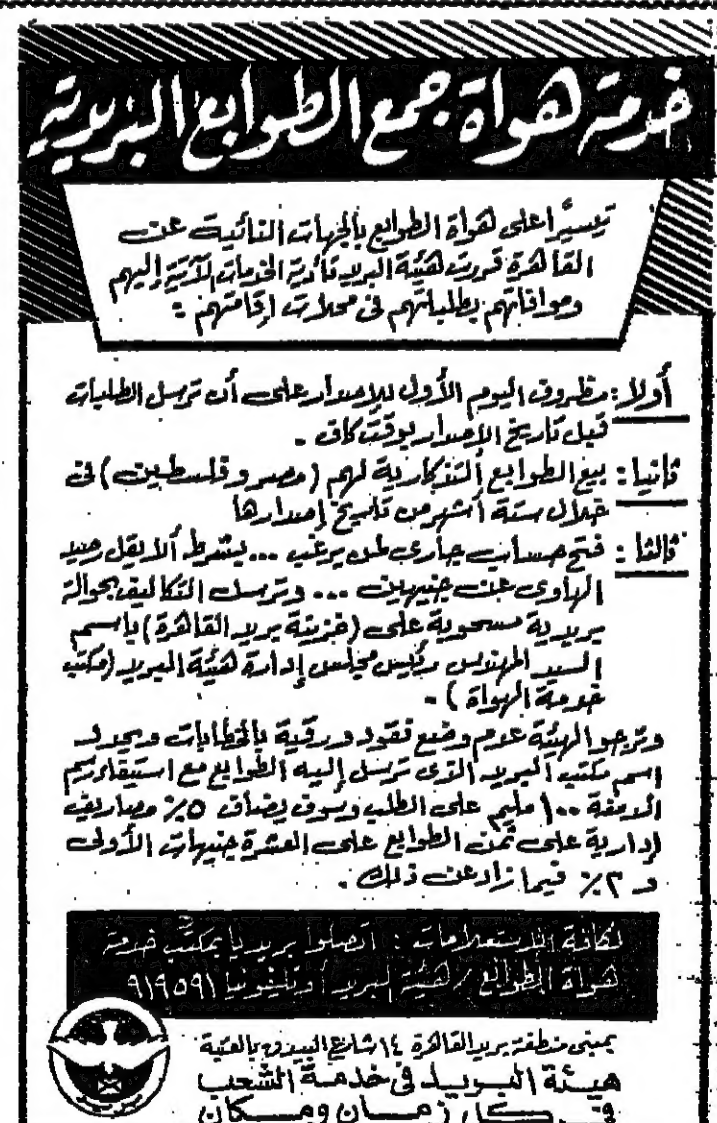 خدمة هواة جمع الطوابع البريدية
تيسيراً على لهواة الطوابع بالجهات النائية عن
القاهرة قررت هيئة البريد تأدية الخدمات الآتية إليهم
وموافاتهم بطلباتهم فى محلات إقامتهم :
أولا : مظروف اليوم الأول للإصدار على أن ترسل الطلبات
قبل تاريخ الإصدار بوقت كاف .
ثانيا : بيع الطوابع التذكارية لهم (مصر وفلسطين) فى
خلال ستة أشهر من تاريخ إصدارها
ثالثا : فتح حساب جارى لمن يرغب ... يشترط ألا يقل رصيد
الهاوى عن جنيهين ... وترسل التكاليف بحوالة
بريدية مسحوبة على (خزينة بريد القاهرة) باسم
السيد المهندس رئيس مجلس إدارة هيئة البريد (مكتب
خدمة الهواة) .
وترجو الهيئة عدم وضع نقود ورقية بالخطابات ويحدد
اسم مكتب البريد الذى ترسل إليه الطوابع مع استيفاء رسم
الدمغة ١٠٠ مليم على الطلب وسوف يضاف ٥٪ مصاريف
إدارية على ثمن الطوابع على العشرة جنيهات الأولى
و ٢٪ فيما زاد عن ذلك .
لكافة الاستعلامات : اتصلوا بريديا بمكتب خدمة
هواة الطوابع / هيئة البريد / وتليفونيا ٩١٩٥٩١
بمبنى منطقة بريد القاهرة ١٤ شارع البيدق بالعتبة
هيئة البريد فى خدمة الشعب
فى كل زمان ومكان